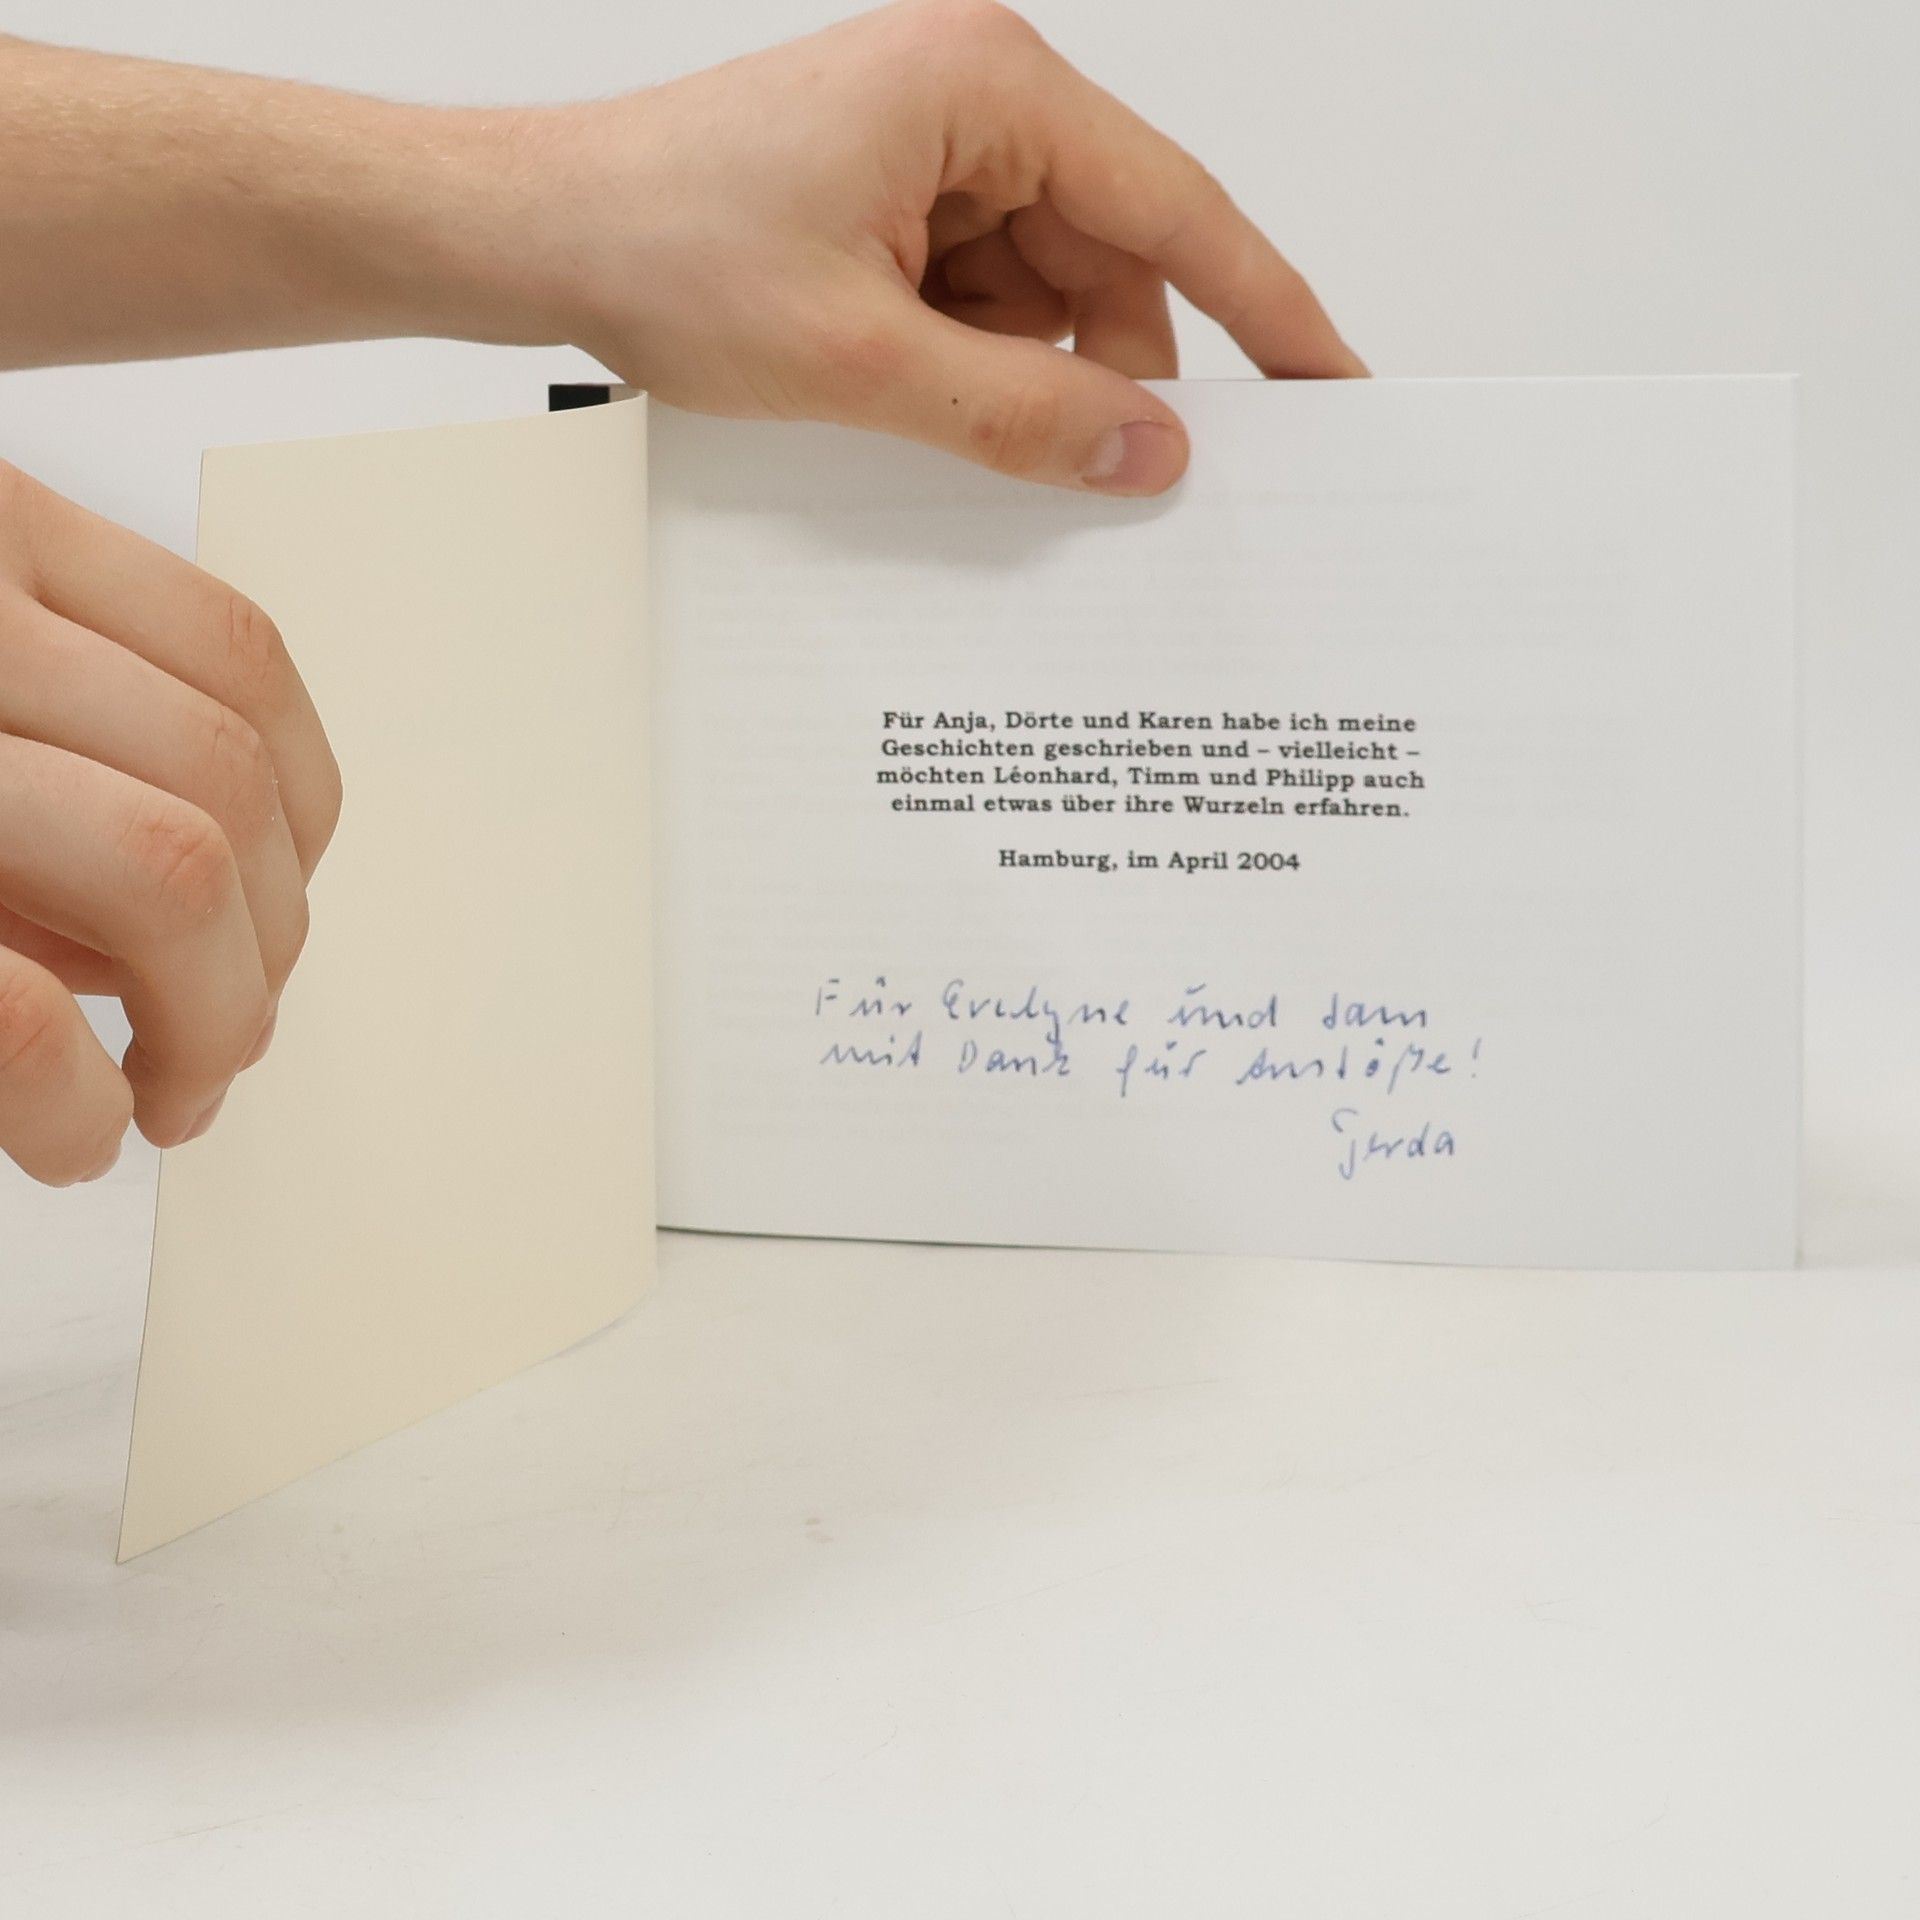 Für Anja, Dörte und Karen habe ich meine
Geschichten geschrieben und – vielleicht –
möchten Léonhard, Timm und Philipp auch
einmal etwas über ihre Wurzeln erfahren.
Hamburg, im April 2004
Für Evelyne und Sam
mit Dank für Anstöße!
Gerda